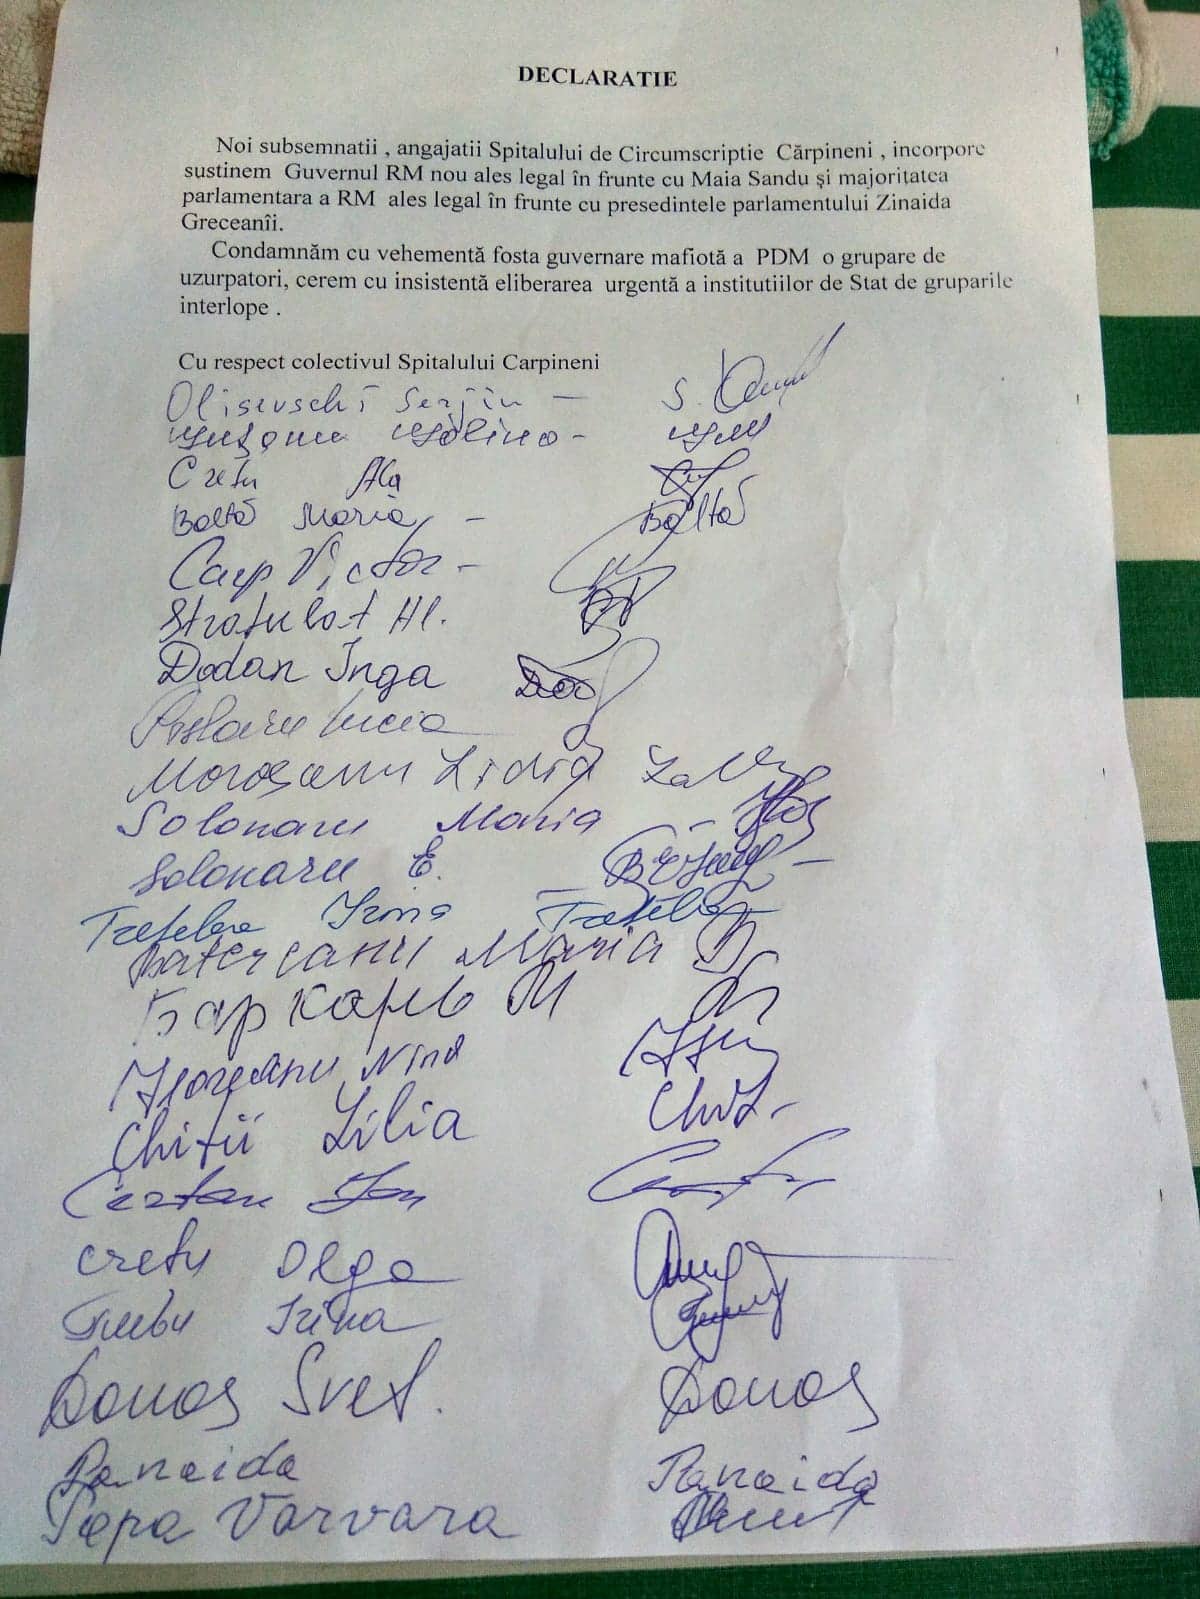 DECLARATIE
Noi subsemnatii , angajatii Spitalului de Circumscriptie Cărpineni , incorpore
sustinem Guvernul RM nou ales legal în frunte cu Maia Sandu și majoritatea
parlamentara a RM ales legal în frunte cu presedintele parlamentului Zinaida
Greceanîi.
Condamnăm cu vehementă fosta guvernare mafiotă a PDM o grupare de
uzurpatori, cerem cu insistentă eliberarea urgentă a institutiilor de Stat de gruparile
interlope .
Cu respect colectivul Spitalului Carpineni
Olisevschi Serjiu - S.
Cretu Ala
Baltă Maria - Baltă
Carp Victor -
Stratulat Al.
Dodan Inga
Lucia
Moroșanu Lidia
Solonaru Maria -
Solonaru E.
Irina
Maria
Nina
Chitii Lilia
Certan Ion
Cretu Olga
Irina
Donos Svet. Donos
Panaida Panaida
Popa Varvara